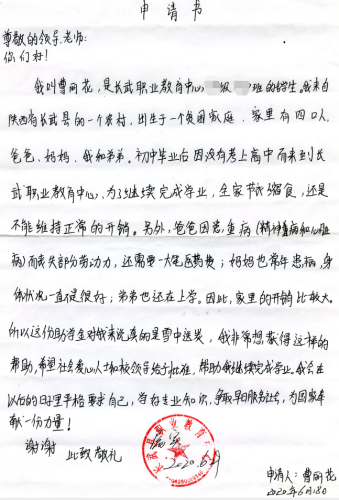 申请书
尊敬的领导、老师:
你们好!
我叫曹丽花,是长武职业教育中心 级 班的学生,我来自
陕西省长武县的一个农村,出生于一个贫困家庭。家里有四口人,
爸爸、妈妈、我和弟弟。初中毕业后因没有考上高中而来到长
武职业教育中心,为了继续完成学业,全家节衣缩食,还是
不能维持正常的开销。另外,爸爸因患重病(精神病和心脏
病)而丧失部份劳动力,还需要一大笔医药费;妈妈也常年患病,身
体状况一直不是很好;弟弟也还在上学。因此,家里的开销比较大。
所以这份助学金对我来说真的是雪中送炭,我非常想获得这样的
帮助,希望社会爱心人士和校领导给予批准,帮助我继续完成学业。我会在
以后的日子里严格要求自己,学好专业知识,争取早日服务社会,为国家奉
献一份力量!
谢谢
此致敬礼
长武县职业教育中心
属实
2020.6.
申请人:曹丽花
2020年6月8日